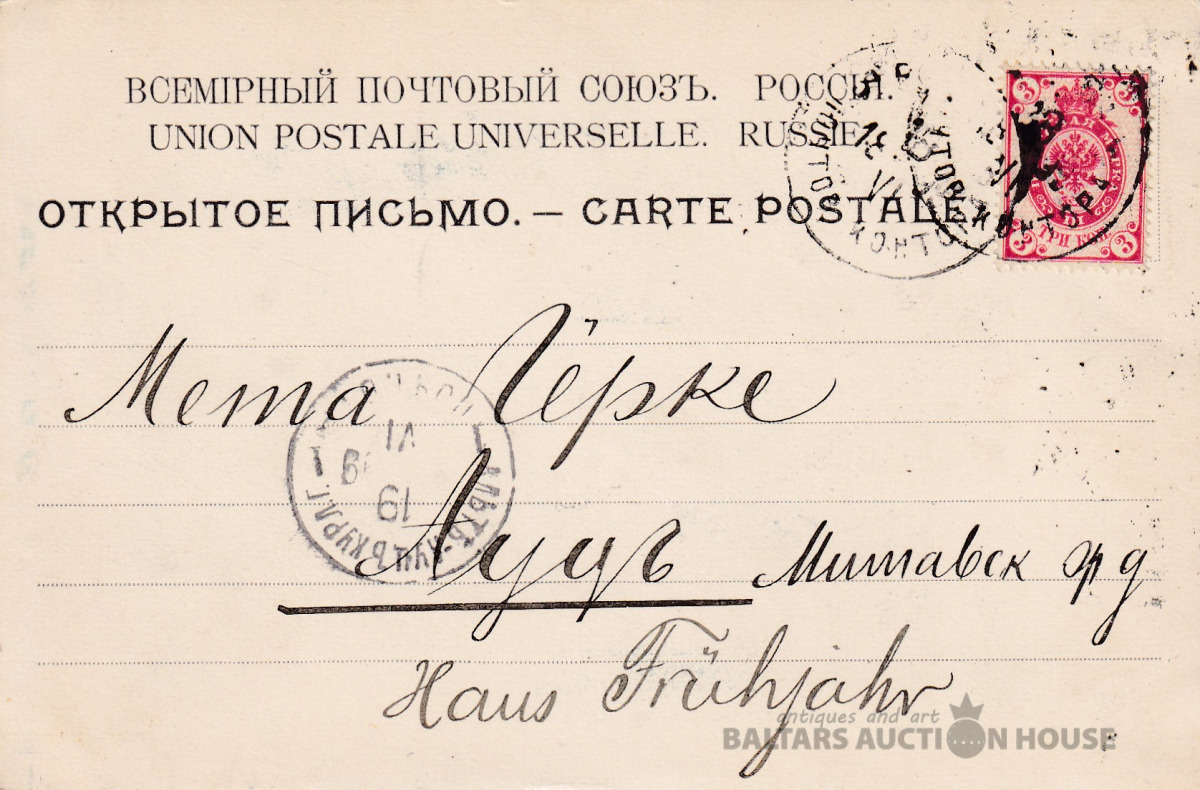 ВСЕМІРНЫЙ ПОЧТОВЫЙ СОЮЗЪ. РОССІЯ.
UNION POSTALE UNIVERSELLE. RUSSIE.
ОТКРЫТОЕ ПИСЬМО. — CARTE POSTALE.
3 3
ТРИ КОП.
3 3
Мета Гёрке
VI
19
Ауцъ Митавск жд
Haus Frühjahr
antiques and art
BALTARS AUCTION HOUSE